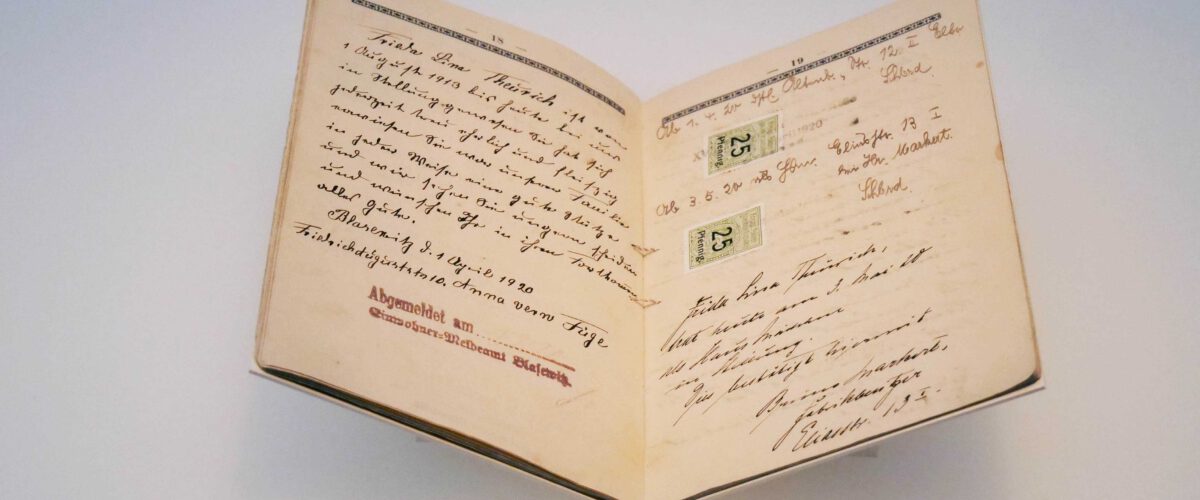 18
Frida Lina Theurich ist vom
1 August 1918 bis heute bei uns
in Stellung gewesen Sie hat sich
jederzeit treu ehrlich und fleißig
erwiesen Sie war unserer Familie
in jeder Weise eine gute Stütze
und wir sehen Sie ungern scheiden
und wünschen Ihr in ihren Fortkommen
alles Gute.
Blasewitz d. 1 April 1920
Friedrichauguststr 10. Anna verw Füge
Abgemeldet am
Einwohner-Meldeamt Blasewitz.
19
Ab 1. 4. 20 12 I
25
Pfennig
1920
Ab 3. 5. 20 Eliasstr. 13 I
bei Hr. Markert.
25
Pfennig.
Frida Lina Theurich,
hat heute am 3. Mai 20
als Hausmädchen
in Stellung.
Dies bestätigt hiermit
Bruno Markert,
Fabrikbesitzer
Eliasstr. 13 I.